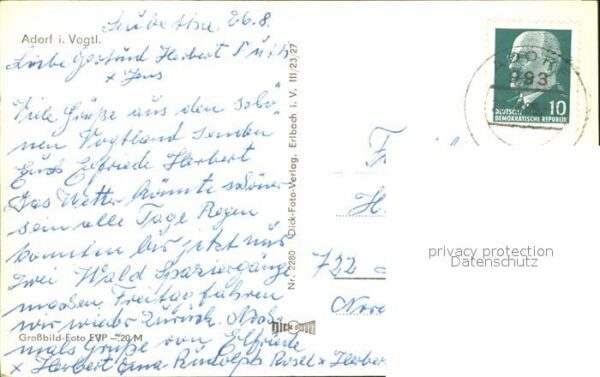 Leubetha, 26.8.
Adorf i. Vogtl.
Liebe Gertrud Herbert Ruth
x Jens
Viele Grüße aus den schö-
nen Vogtland senden
Euch Elfriede Herbert
Das Wetter könnte schöner
sein alle Tage Regen
konnten bis jetzt nur
zwei Wald Spaziergänge
machen. Freitag fahren
wir wieder zurück. Noch-
mals Grüße von Elfriede
Großbild-Foto EVP -.20 M
x Herbert Erna Rudolph Rosel x Herbert
Nr. 2280 Dick-Foto-Verlag, Erlbach i. V. III/23 27
DICK
ADORF
993
10
DEUTSCHE
DEMOKRATISCHE REPUBLIK
722
privacy protection
Datenschutz